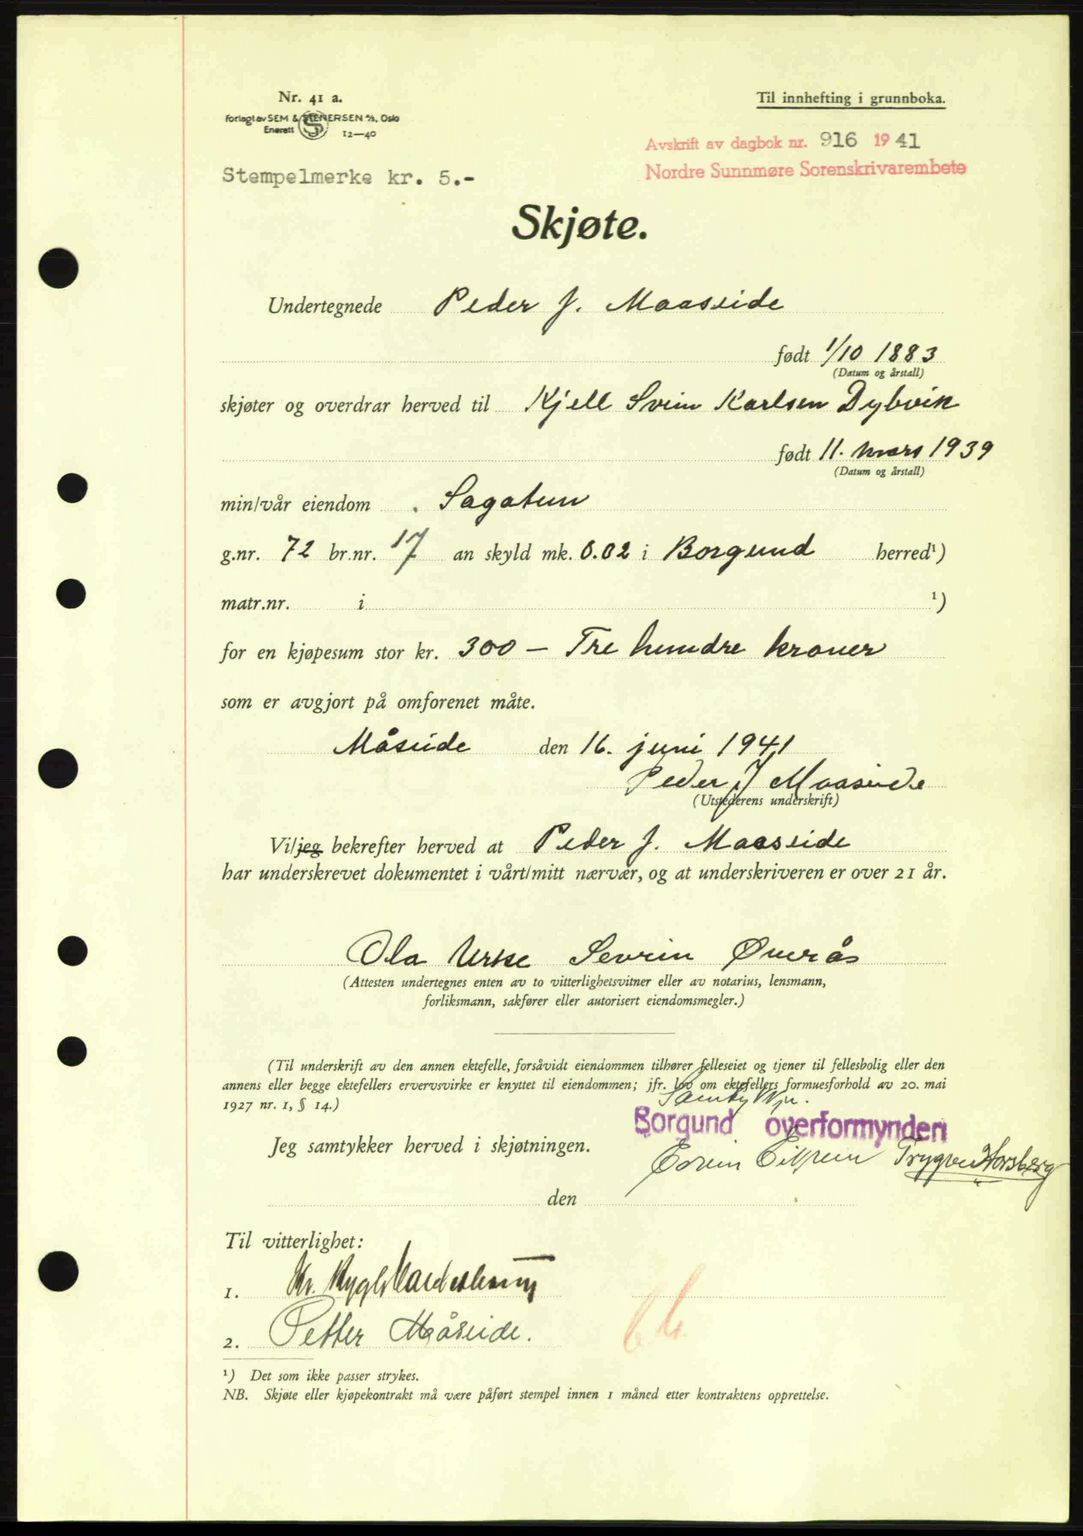 Nr. 41 a.
Forlagt av SEM & STENERSEN A/S, Oslo
Enerett 12—40
Til innhefting i grunnboka.
Avskrift av dagbok nr. 916 1941
Nordre Sunnmøre Sorenskrivarembete
Stempelmerke kr. 5.-
Skjøte.
Undertegnede Peder J. Maaseide
født 1/10 1883
(Datum og årstall)
skjøter og overdrar herved til Kjell Svein Karlsen Dybvik
født 11. mars 1939
(Datum og årstall)
min/vår eiendom Sagatun
g.nr. 72 br.nr. 17 an skyld mk. 0.02 i Borgund herred¹)
matr.nr. i ¹)
for en kjøpesum stor kr. 300 — Tre hundre kroner
som er avgjort på omforenet måte.
Måseide den 16. juni 1941
Peder J Maaseide
(Utstederens underskrift)
Vi/jeg bekrefter herved at Peder J. Maaseide
har underskrevet dokumentet i vårt/mitt nærvær, og at underskriveren er over 21 år.
Ola Urke Sevrin Øverås
(Attesten undertegnes enten av to vitterlighetsvitner eller av notarius, lensmann,
forliksmann, sakfører eller autorisert eiendomsmegler.)
(Til underskrift av den annen ektefelle, forsåvidt eiendommen tilhører felleseiet og tjener til fellesbolig eller den
annens eller begge ektefellers ervervsvirke er knyttet til eiendommen; jfr. lov om ektefellers formuesforhold av 20. mai
1927 nr. 1, § 14.)
Borgund overformynderi
Jeg samtykker herved i skjøtningen.
Trygve Horsberg
den
Til vitterlighet:
1.
2. Petter Måseide.
¹) Det som ikke passer strykes.
NB. Skjøte eller kjøpekontrakt må være påført stempel innen 1 måned etter kontraktens opprettelse.